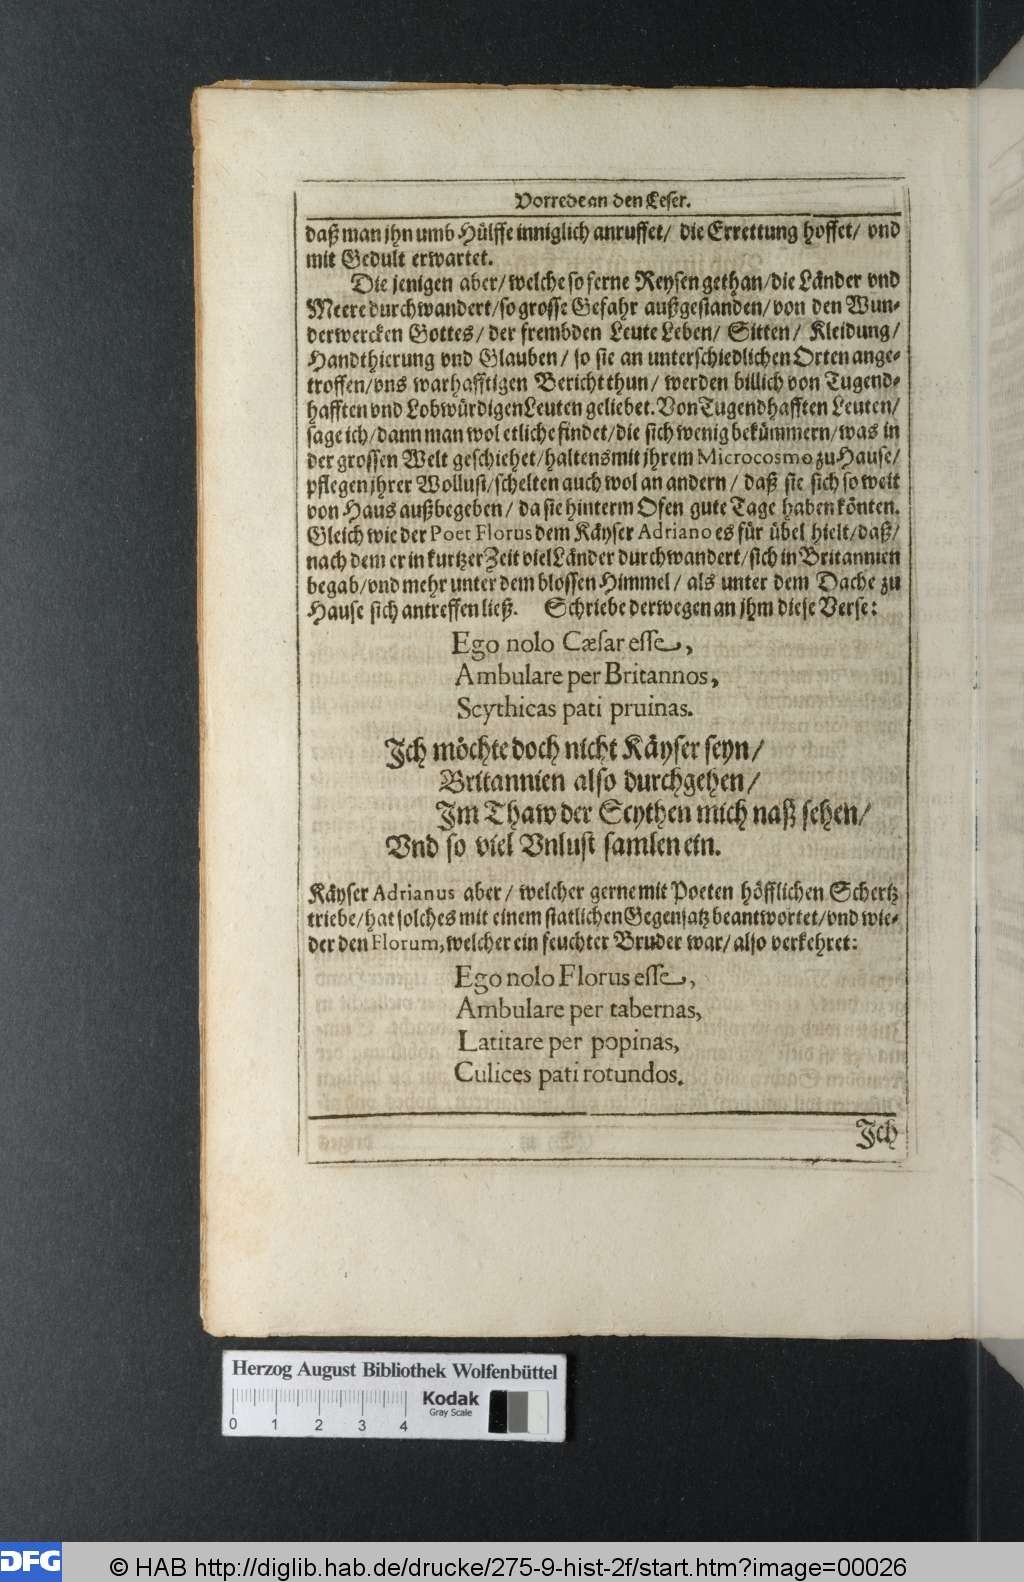 Vorrede an den Leser.
daß man jhn umb Hülffe inniglich anruffet/ die Errettung hoffet/ vnd
mit Gedult erwartet.
Die jenigen aber/ welche so ferne Reysen gethan/ die Länder vnd
Meere durchwandert/ so grosse Gefahr außgestanden/ von den Wun-
derwercken Gottes/ der frembden Leute Leben/ Sitten/ Kleidung/
Handthierung vnd Glauben/ so sie an unterschiedlichen Orten ange-
troffen/ vns warhafftigen Bericht thun/ werden billich von Tugend-
hafften vnd Lobwürdigen Leuten geliebet. Von Tugendhafften Leuten/
sage ich/ dann man wol etliche findet/ die sich wenig bekümmern/ was in
der grossen Welt geschiehet/ haltens mit jhrem Microcosmo zu Hause/
pflegen jhrer Wollust/ schelten auch wol an andern/ daß sie sich so weit
von Haus außbegeben/ da sie hinterm Ofen gute Tage haben könten.
Gleich wie der Poet Florus dem Käyser Adriano es für übel hielt/ daß/
nach dem er in kurtzer Zeit viel Länder durchwandert/ sich in Britannien
begab/ vnd mehr unter dem blossen Himmel/ als unter dem Dache zu
Hause sich antreffen ließ. Schriebe derwegen an jhm diese Verse:
Ego nolo Cæsar esse,
Ambulare per Britannos,
Scythicas pati pruinas.
Jch möchte doch nicht Käyser seyn/
Britannien also durchgehen/
Im Thaw der Scythen mich naß sehen/
Vnd so viel Vnlust samlen ein.
Käyser Adrianus aber/ welcher gerne mit Poeten höfflichen Schertz
triebe/ hat solches mit einem statlichen Gegensatz beantwortet/ vnd wie-
der den Florum, welcher ein feuchter Bruder war/ also verkehret:
Ego nolo Florus esse,
Ambulare per tabernas,
Latitare per popinas,
Culices pati rotundos.
Jch
Herzog August Bibliothek Wolfenbüttel
Kodak
Gray Scale
0 1 2 3 4
DFG
© HAB http://diglib.hab.de/drucke/275-9-hist-2f/start.htm?image=00026